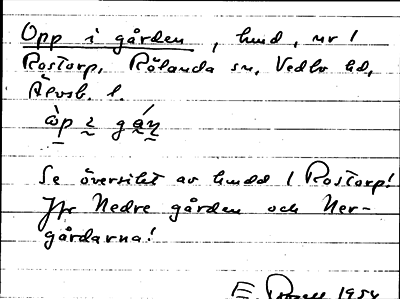 Opp i gården, hmd, nr 1
Rostorp, Rölanda sn, Vedbo hd,
Älvsb. l.
Se översikt av hmdd / Rostorp!
Jfr Nedre gården och Ner-
gårdarna!
E 1954